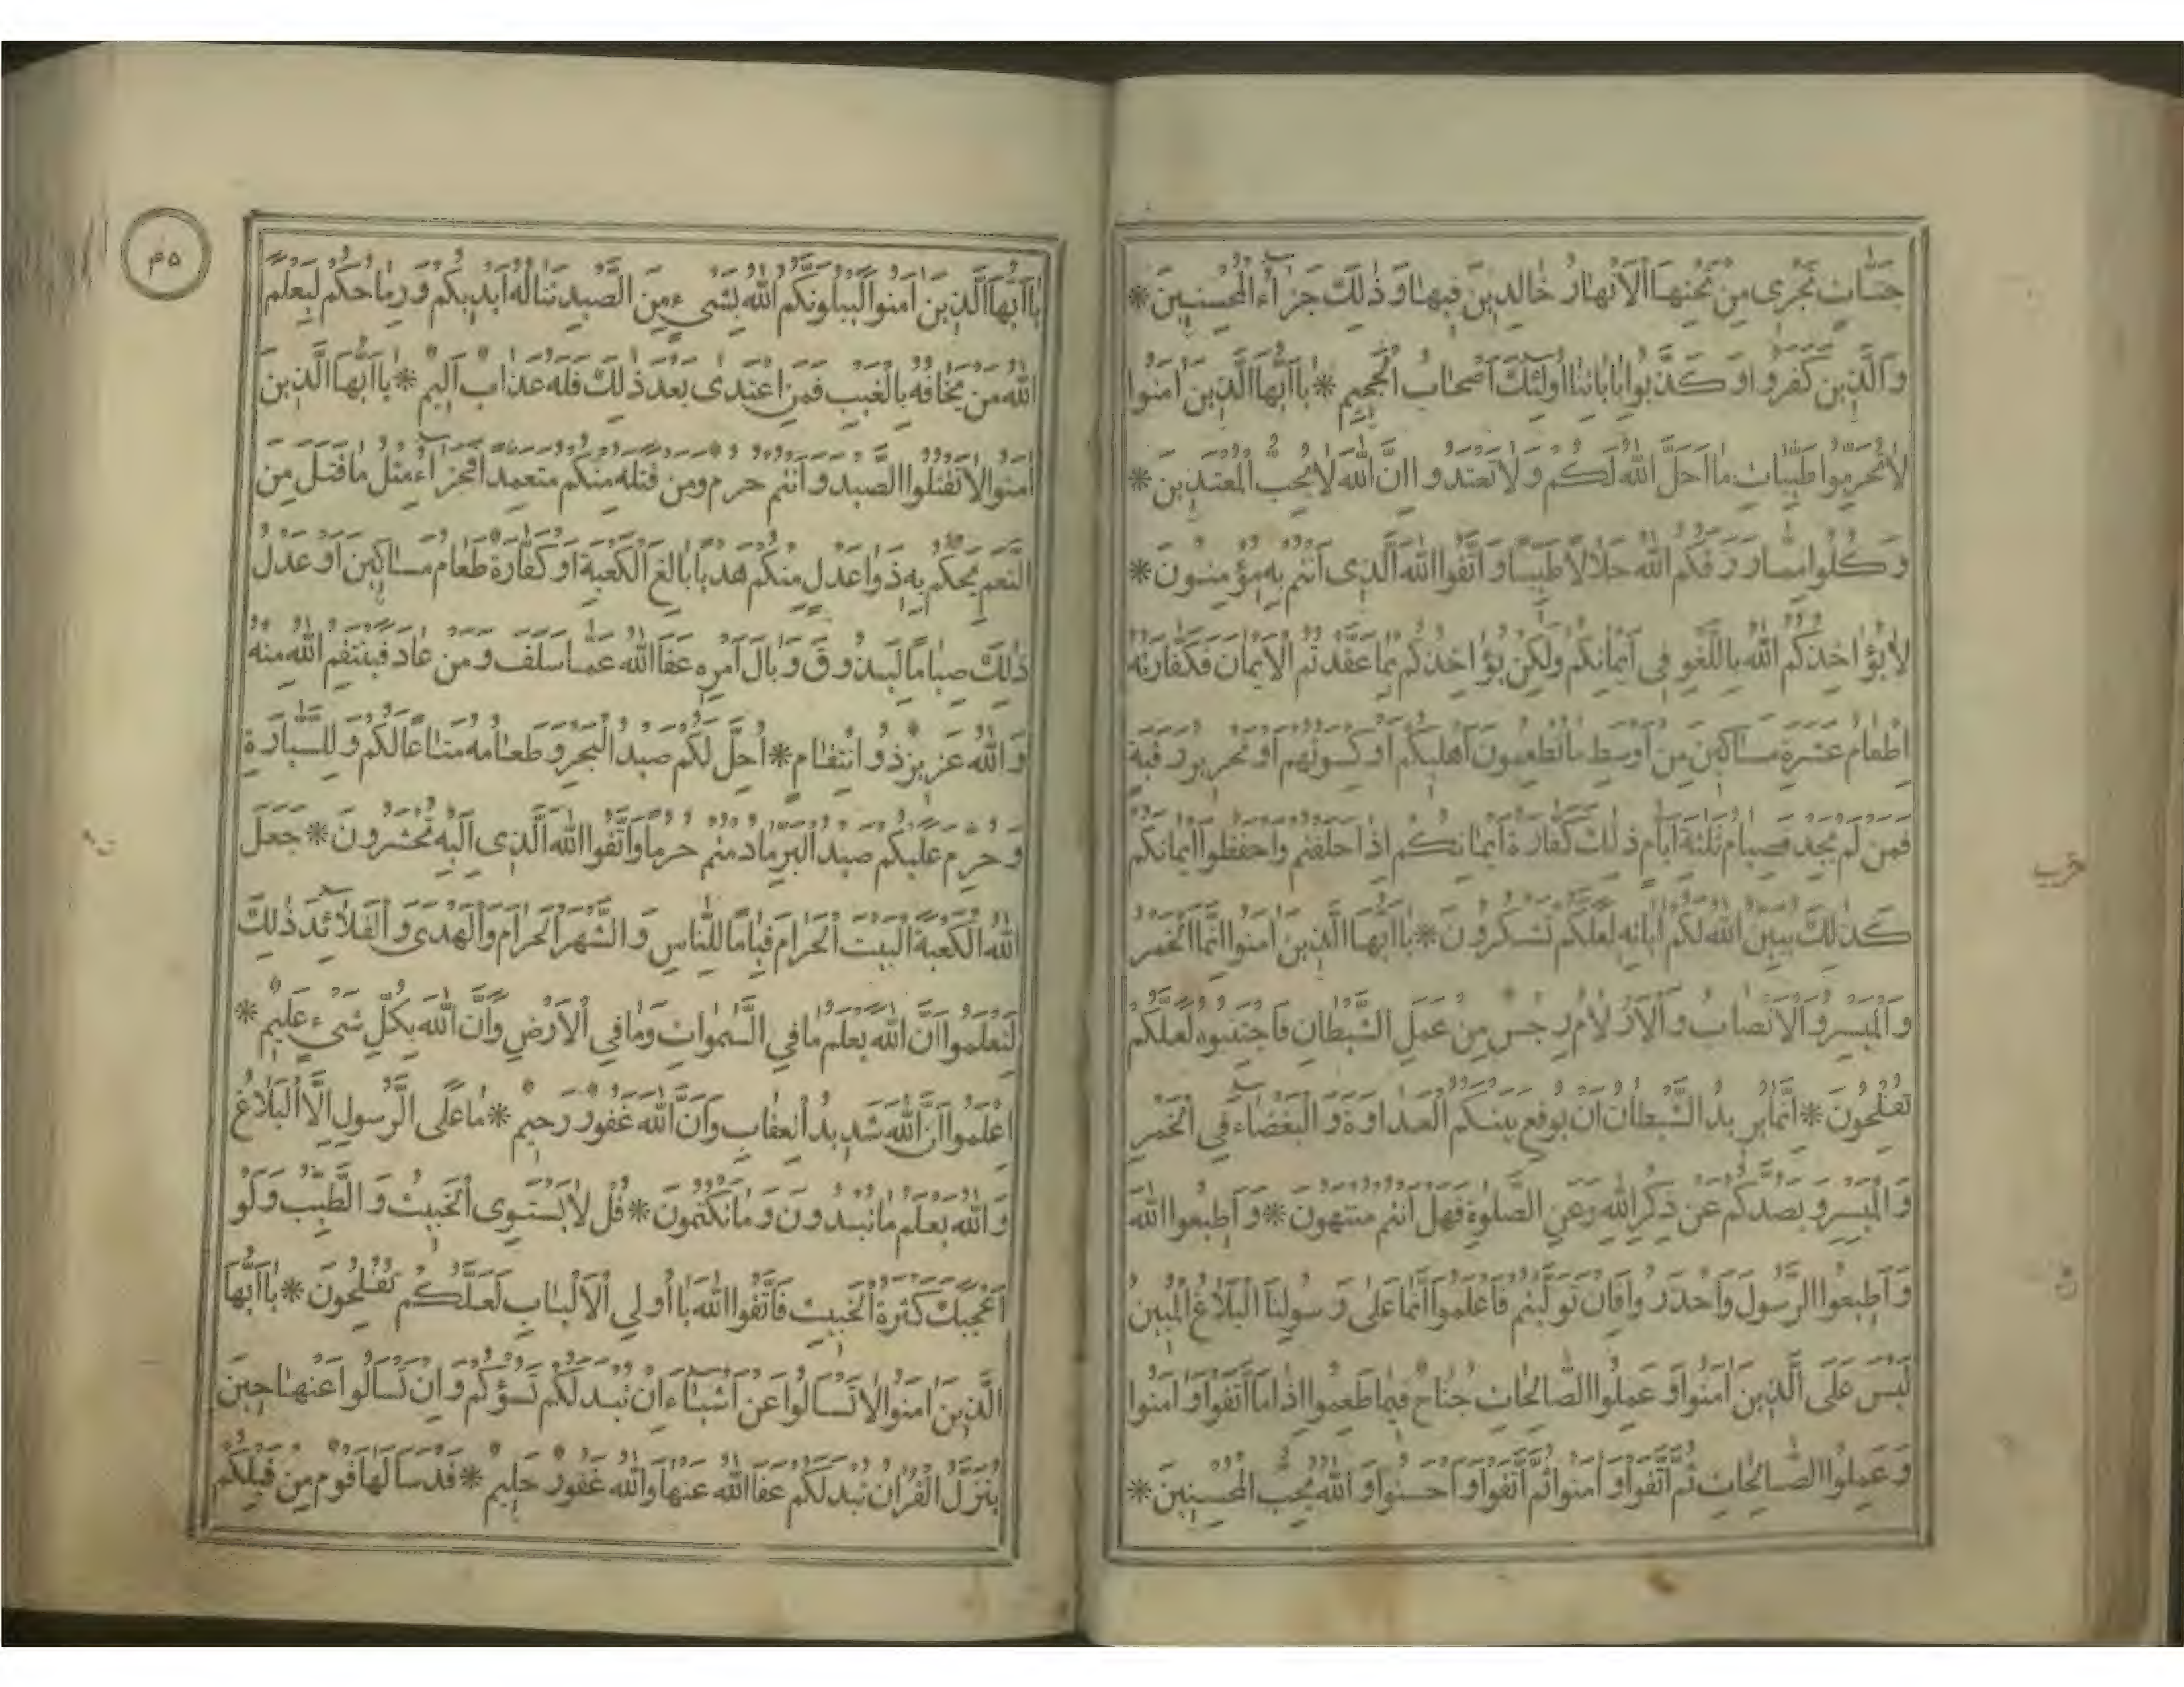 جَنَّاتٍ تَجْرِى مِنْ تَحْتِهَا الْاَنْهَارُ خَالِدِينَ فِيهَا وَ ذٰلِكَ جَزَآءُ الْمُحْسِنِينَ *
وَ الَّذِينَ كَفَرُوا وَ كَذَّبُوا بِاٰيَاتِنَا اُولٰئِكَ اَصْحَابُ الْجَحِيمِ * يَا اَيُّهَا الَّذِينَ اٰمَنُوا
لَا تُحَرِّمُوا طَيِّبَاتِ مَا اَحَلَّ اللّٰهُ لَكُمْ وَ لَا تَعْتَدُوا اِنَّ اللّٰهَ لَا يُحِبُّ الْمُعْتَدِينَ *
وَ كُلُوا مِمَّا رَزَقَكُمُ اللّٰهُ حَلَالًا طَيِّبًا وَ اتَّقُوا اللّٰهَ الَّذِى اَنْتُمْ بِهِ مُؤْمِنُونَ *
لَا يُؤَاخِذُكُمُ اللّٰهُ بِاللَّغْوِ فِى اَيْمَانِكُمْ وَلٰكِنْ يُؤَاخِذُكُمْ بِمَا عَقَّدْتُمُ الْاَيْمَانَ فَكَفَّارَتُهُ
اِطْعَامُ عَشَرَةِ مَسَاكِينَ مِنْ اَوْسَطِ مَا تُطْعِمُونَ اَهْلِيكُمْ اَوْ كِسْوَتُهُمْ اَوْ تَحْرِيرُ رَقَبَةٍ
فَمَنْ لَمْ يَجِدْ فَصِيَامُ ثَلٰثَةِ اَيَّامٍ ذٰلِكَ كَفَّارَةُ اَيْمَانِكُمْ اِذَا حَلَفْتُمْ وَاحْفَظُوا اَيْمَانَكُمْ
كَذٰلِكَ يُبَيِّنُ اللّٰهُ لَكُمْ اٰيَاتِهِ لَعَلَّكُمْ تَشْكُرُونَ * يَا اَيُّهَا الَّذِينَ اٰمَنُوا اِنَّمَا الْخَمْرُ
وَ الْمَيْسِرُ وَ الْاَنْصَابُ وَ الْاَزْلَامُ رِجْسٌ مِنْ عَمَلِ الشَّيْطَانِ فَاجْتَنِبُوهُ لَعَلَّكُمْ
تُفْلِحُونَ * اِنَّمَا يُرِيدُ الشَّيْطَانُ اَنْ يُوقِعَ بَيْنَكُمُ الْعَدَاوَةَ وَ الْبَغْضَاءَ فِى الْخَمْرِ
وَ الْمَيْسِرِ وَ يَصُدَّكُمْ عَنْ ذِكْرِ اللّٰهِ وَعَنِ الصَّلٰوةِ فَهَلْ اَنْتُمْ مُنْتَهُونَ * وَ اَطِيعُوا اللّٰهَ
وَ اَطِيعُوا الرَّسُولَ وَاحْذَرُوا فَاِنْ تَوَلَّيْتُمْ فَاعْلَمُوا اَنَّمَا عَلٰى رَسُولِنَا الْبَلَاغُ الْمُبِينُ
لَيْسَ عَلَى الَّذِينَ اٰمَنُوا وَ عَمِلُوا الصَّالِحَاتِ جُنَاحٌ فِيمَا طَعِمُوا اِذَا مَا اتَّقَوْا وَ اٰمَنُوا
وَ عَمِلُوا الصَّالِحَاتِ ثُمَّ اتَّقَوْا وَ اٰمَنُوا ثُمَّ اتَّقَوْا وَ اَحْسَنُوا وَ اللّٰهُ يُحِبُّ الْمُحْسِنِينَ *
حزب
۴۵
يَا اَيُّهَا الَّذِينَ اٰمَنُوا لَيَبْلُوَنَّكُمُ اللّٰهُ بِشَىْءٍ مِنَ الصَّيْدِ تَنَالُهُ اَيْدِيكُمْ وَ رِمَاحُكُمْ لِيَعْلَمَ
اللّٰهُ مَنْ يَخَافُهُ بِالْغَيْبِ فَمَنِ اعْتَدٰى بَعْدَ ذٰلِكَ فَلَهُ عَذَابٌ اَلِيمٌ * يَا اَيُّهَا الَّذِينَ
اٰمَنُوا لَا تَقْتُلُوا الصَّيْدَ وَ اَنْتُمْ حُرُمٌ وَمَنْ قَتَلَهُ مِنْكُمْ مُتَعَمِّدًا فَجَزَآءٌ مِثْلُ مَا قَتَلَ مِنَ
النَّعَمِ يَحْكُمُ بِهِ ذَوَا عَدْلٍ مِنْكُمْ هَدْيًا بَالِغَ الْكَعْبَةِ اَوْ كَفَّارَةٌ طَعَامُ مَسَاكِينَ اَوْ عَدْلُ
ذٰلِكَ صِيَامًا لِيَذُوقَ وَبَالَ اَمْرِهِ عَفَا اللّٰهُ عَمَّا سَلَفَ وَ مَنْ عَادَ فَيَنْتَقِمُ اللّٰهُ مِنْهُ
وَ اللّٰهُ عَزِيزٌ ذُو انْتِقَامٍ * اُحِلَّ لَكُمْ صَيْدُ الْبَحْرِ وَ طَعَامُهُ مَتَاعًا لَكُمْ وَ لِلسَّيَّارَةِ
وَ حُرِّمَ عَلَيْكُمْ صَيْدُ الْبَرِّ مَا دُمْتُمْ حُرُمًا وَاتَّقُوا اللّٰهَ الَّذِى اِلَيْهِ تُحْشَرُونَ * جَعَلَ
اللّٰهُ الْكَعْبَةَ الْبَيْتَ الْحَرَامَ قِيَامًا لِلنَّاسِ وَ الشَّهْرَ الْحَرَامَ وَالْهَدْىَ وَ الْقَلَائِدَ ذٰلِكَ
لِتَعْلَمُوا اَنَّ اللّٰهَ يَعْلَمُ مَا فِي السَّمٰوَاتِ وَمَا فِي الْاَرْضِ وَاَنَّ اللّٰهَ بِكُلِّ شَىْءٍ عَلِيمٌ *
اِعْلَمُوا اَنَّ اللّٰهَ شَدِيدُ الْعِقَابِ وَاَنَّ اللّٰهَ غَفُورٌ رَحِيمٌ * مَا عَلَى الرَّسُولِ اِلَّا الْبَلَاغُ
وَ اللّٰهُ يَعْلَمُ مَا تُبْدُونَ وَ مَا تَكْتُمُونَ * قُلْ لَا يَسْتَوِى الْخَبِيثُ وَ الطَّيِّبُ وَ لَوْ
اَعْجَبَكَ كَثْرَةُ الْخَبِيثِ فَاتَّقُوا اللّٰهَ يَا اُولِي الْاَلْبَابِ لَعَلَّكُمْ تُفْلِحُونَ * يَا اَيُّهَا
الَّذِينَ اٰمَنُوا لَا تَسْاَلُوا عَنْ اَشْيَاءَ اِنْ تُبْدَ لَكُمْ تَسُؤْكُمْ وَ اِنْ تَسْاَلُوا عَنْهَا حِينَ
يُنَزَّلُ الْقُرْاٰنُ تُبْدَ لَكُمْ عَفَا اللّٰهُ عَنْهَا وَاللّٰهُ غَفُورٌ حَلِيمٌ * قَدْ سَاَلَهَا قَوْمٌ مِنْ قَبْلِكُمْ